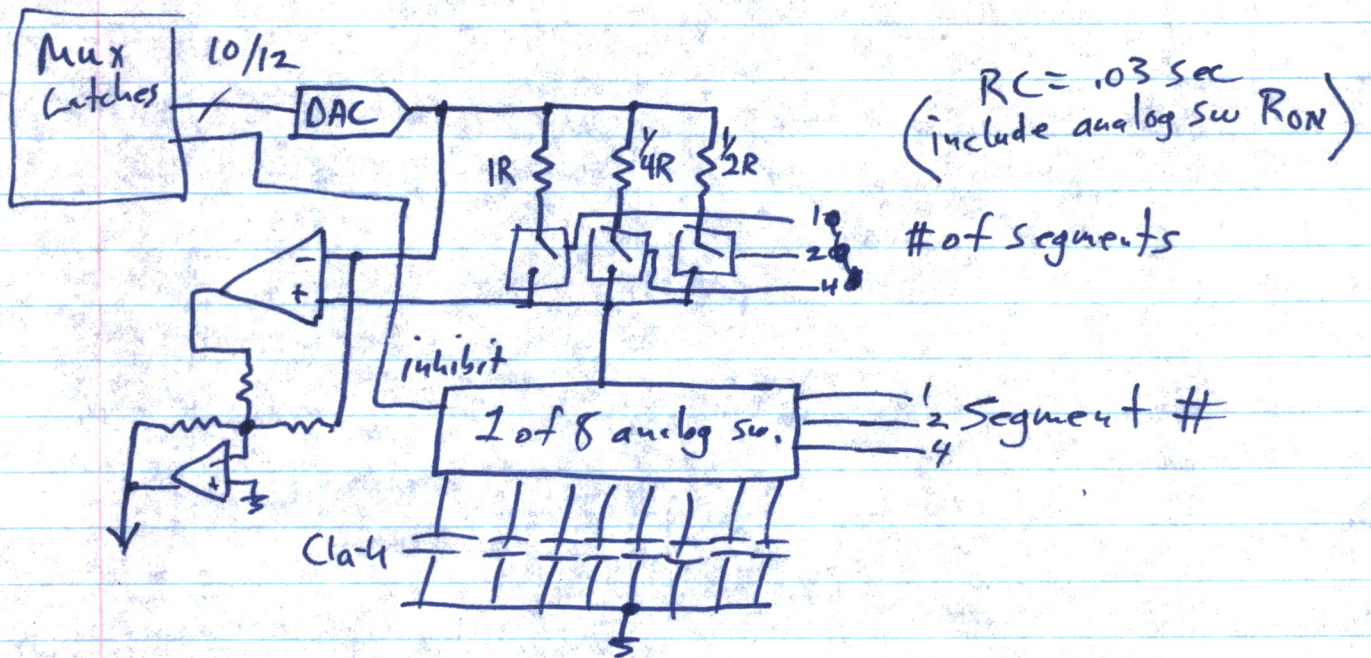 Mux
Latches
10/12
DAC
1R
1/4R
1/2R
RC = .03 sec
(include analog sw RON)
1
2
4
# of segments
-
+
inhibit
1 of 8 analog sw.
1
2
4
Segment #
-
+
C1a-h